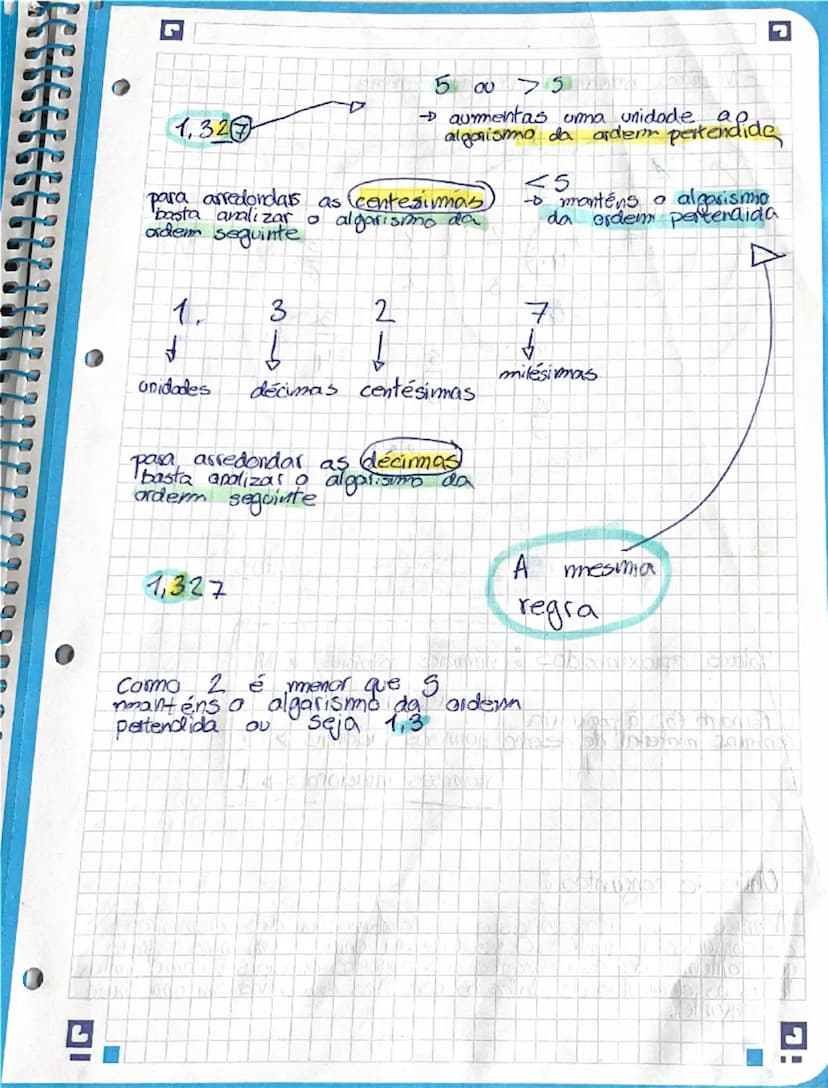 5 ou > 5
1,327
→ aumentas uma unidade ao
algarismo da ordem pertendida
para arredondar as centesimas
basta analizar o algarismo da
ordem seguinte
<5
→ manténs o algarismo
da ordem pertendida
1, 3 2 7
unidades décimas centésimas milésimas
para arredondar as décimas
basta analizar o algarismo da
ordem seguinte
A mesma
regra
1,327
Como 2 é menor que 5
manténs o algarismo da ordem
pertendida ou seja 1,3